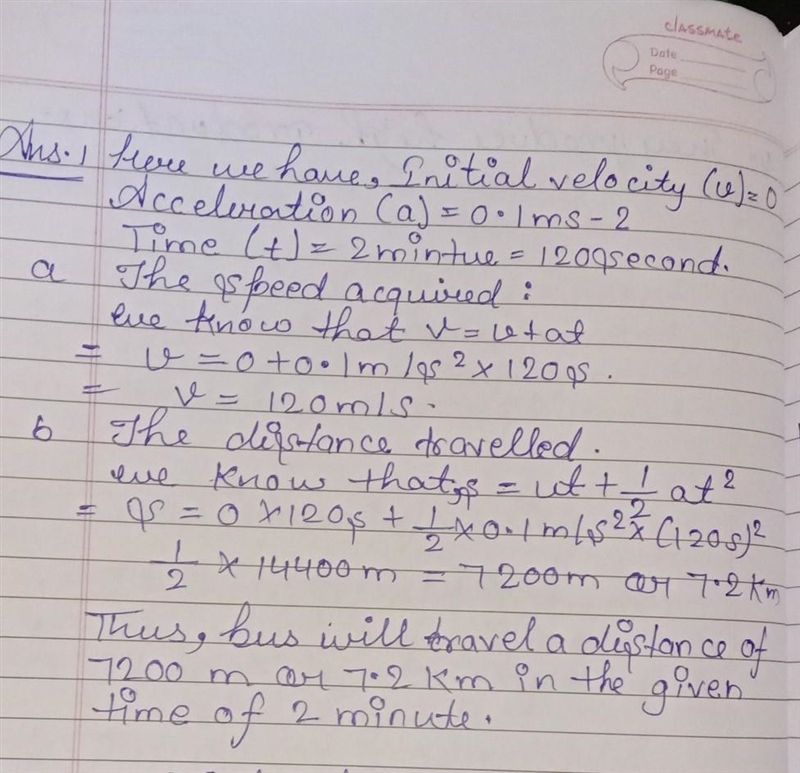 classmate
Date
Page
Ans.1 here we have, Initial velocity (u)=0
Acceleration (a)=0.1ms-2
Time (t)=2mintue=120second.
a The speed acquired:
we know that v=u+at
= v=0+0.1m/s²×120s.
= v=120m/s.
b The distance travelled.
we know that, s=ut+1/2 at²
= s=0×120s+1/2×0.1m/s²×(120s)²
1/2×14400m=7200m or 7.2Km
Thus, bus will travel a distance of
7200 m or 7.2 Km in the given
time of 2 minute.